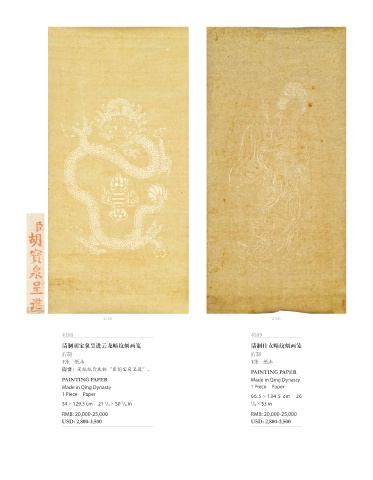 臣胡寶泉呈進
4588
清制胡宝泉呈进云龙暗纹刻画笺
清制
1张 纸本
PAINTING PAPER
Made in Qing Dynasty
1 Piece Paper
54 × 129.5 cm 21 1/4 × 50 7/8 in
RMB: 20,000-25,000
USD: 2,800-3,500
4589
清制仕女暗纹刻画笺
清制
1张 纸本
PAINTING PAPER
Made in Qing Dynasty
1 Piece Paper
66.5 × 134.5 cm 26
× 53 in
RMB: 20,000-25,000
USD: 2,800-3,500